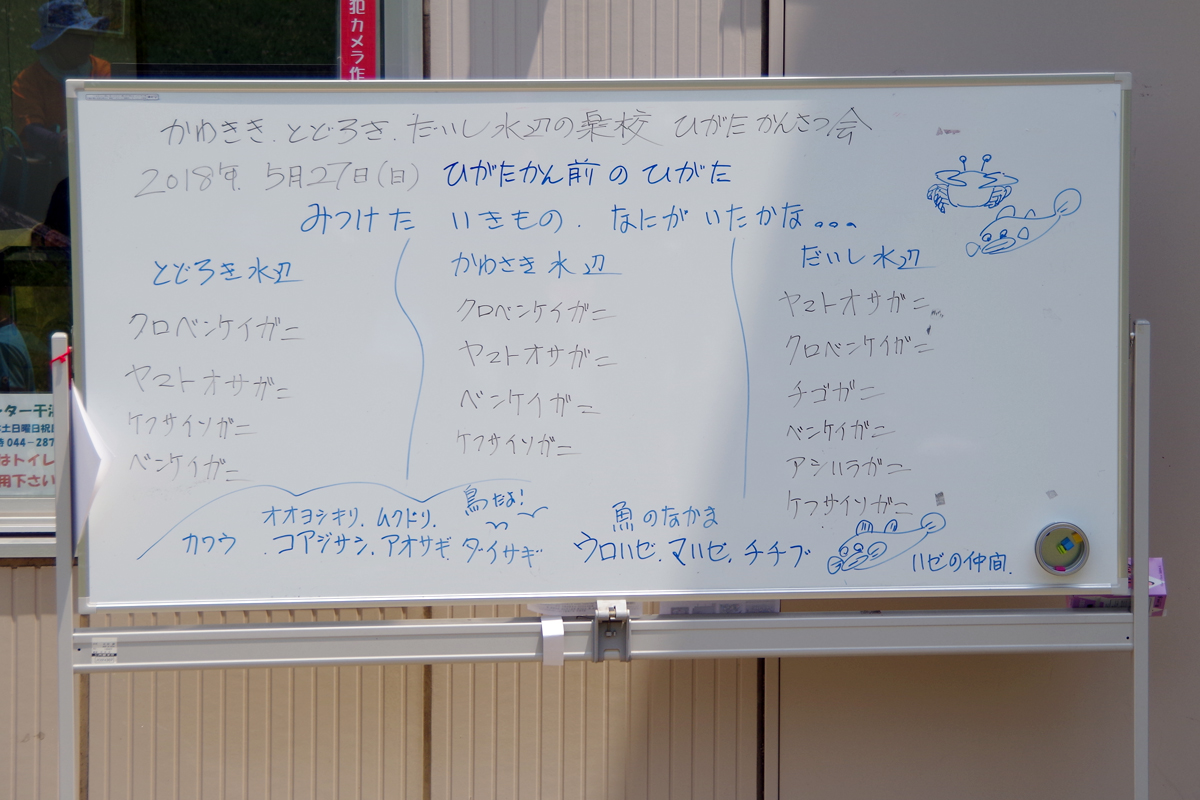 犯カメラ作
かわさき.とどろき.だいし水辺の楽校 ひがたかんさつ会
2018年. 5月27日(日) ひがたかん前のひがた
みつけた いきもの. なにが いたかな...
とどろき水辺
クロベンケイガニ
ヤマトオサガニ
ケフサイソガニ
ベンケイガニ
かわさき水辺
クロベンケイガニ
ヤマトオサガニ
ベンケイガニ
ケフサイソガニ
だいし水辺
ヤマトオサガニ
クロベンケイガニ
チゴガニ
ベンケイガニ
アシハラガニ
ケフサイソガニ
鳥だよ!
オオヨシキリ. ムクドリ.
カワウ .コアジサシ.アオサギ ダイサギ
魚のなかま
ウロハゼ.マハゼ.チチブ
ハゼの仲間.
ター干潟
土日曜日祝
044-287
はトイレ
用下さい